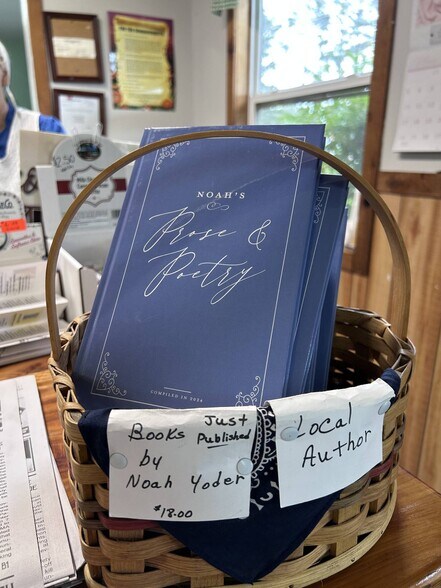 NOAH'S
Prose &
Poetry
COMPILED IN 2024
Books Just Published
by
Noah Yoder
$18.00
Local
Author